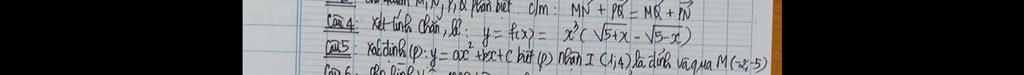 M, N, P, Q phân biệt. c/m: MN + PQ = MQ + PN
Câu 4: Xét tính chẵn, lẻ: y = f(x) = x³(√5+x - √5-x)
Câu 5: Xác định (P): y = ax² + bx + c biết (P) nhận I(1,4) là đỉnh và qua M(-2;-5)
Câu 6: